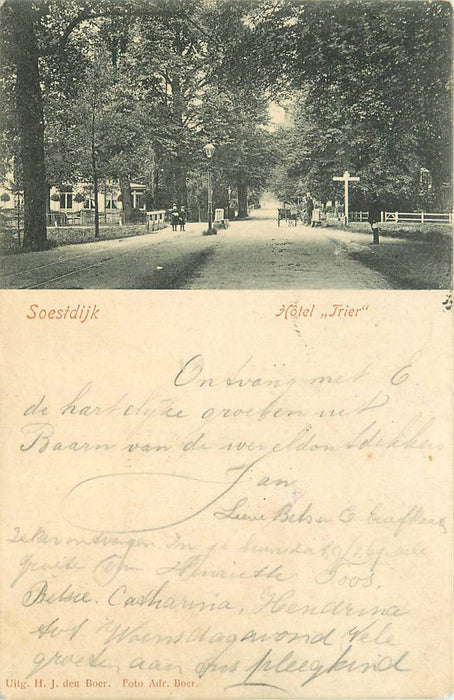 Soestdijk
Hôtel „Trier"
Ontvang met E.
de hartelijke groeten uit
Baarn van de wereldontdekkers
Jan
Lieve Bets en E. briefkaart
zeker ontvangen. In
groete van Henriette Toos,
Betsie. Catharina, Hendrina
tot Woensdagavond Vele
groeten aan ons pleegkind
Uitg. H. J. den Boer. Foto Adr. Boer.